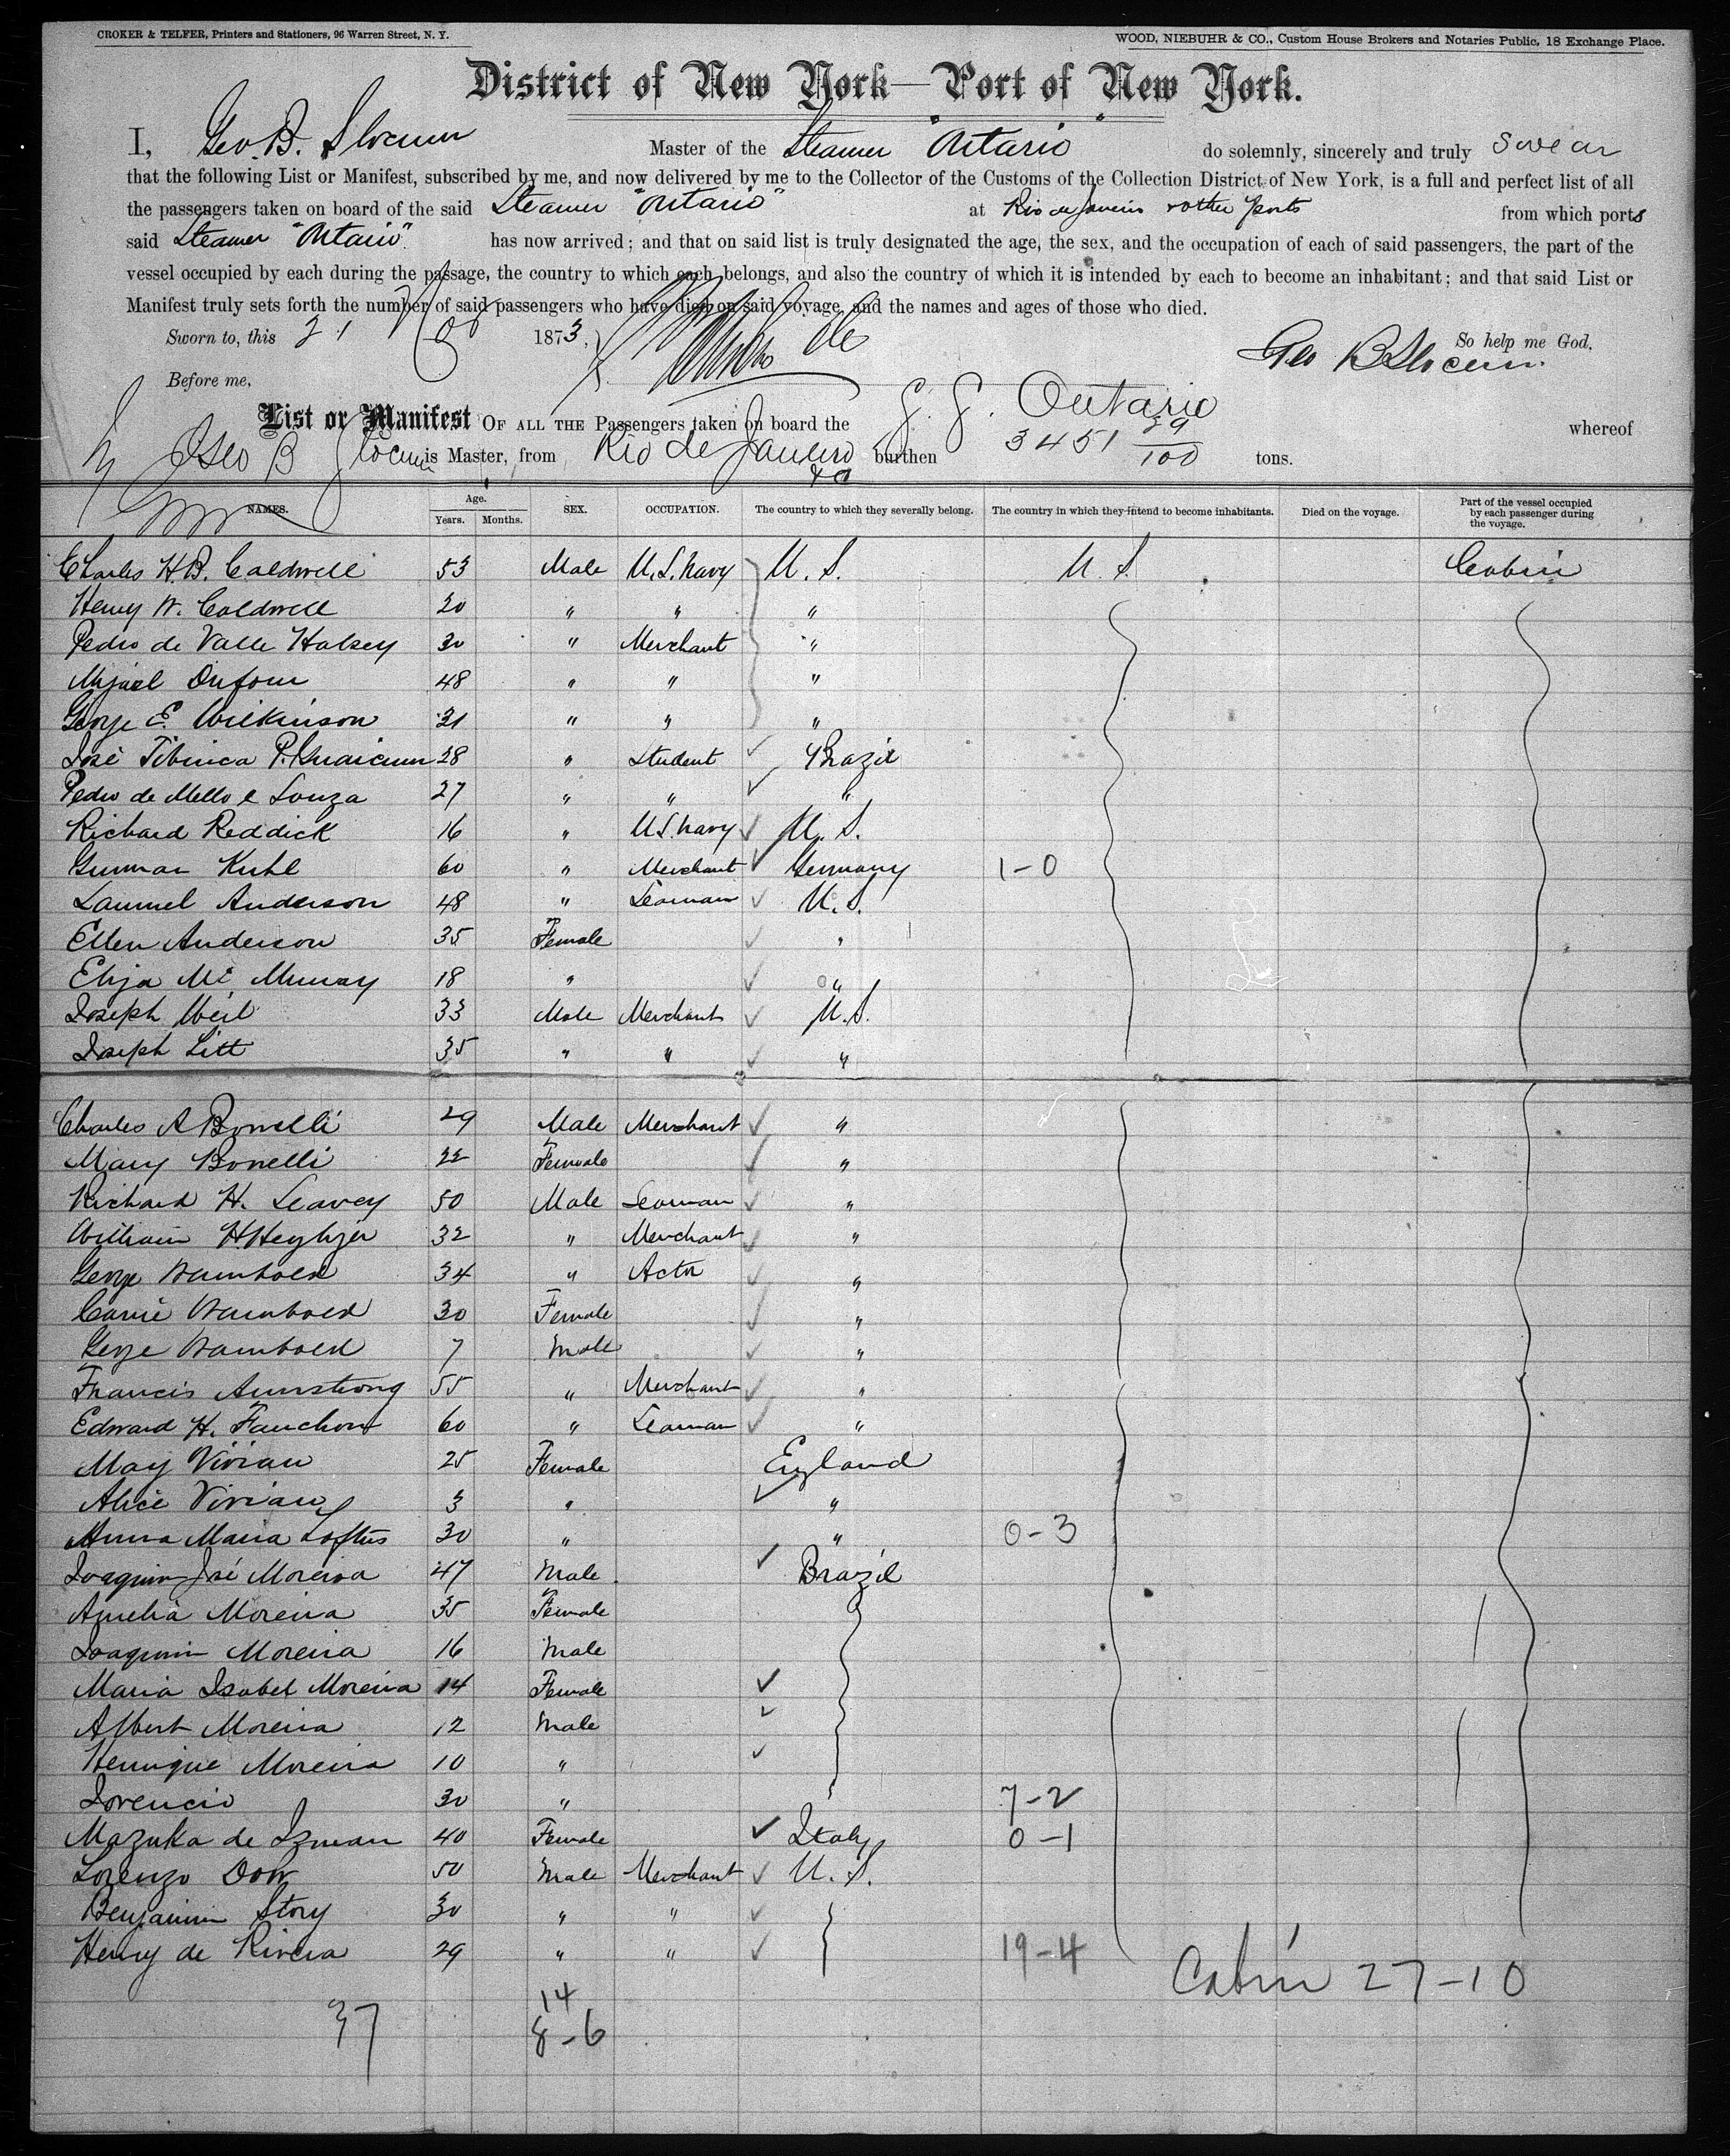 CROKER & TELFER, Printers and Stationers, 96 Warren Street, N. Y.
WOOD, NIEBUHR & CO., Custom House Brokers and Notaries Public, 18 Exchange Place.
District of New York—Port of New York.
I, Geo. B. Slocum Master of the Steamer "Ontario" do solemnly, sincerely and truly swear
that the following List or Manifest, subscribed by me, and now delivered by me to the Collector of the Customs of the Collection District of New York, is a full and perfect list of all
the passengers taken on board of the said Steamer "Ontario" at Rio de Janeiro & other ports from which ports
said Steamer "Ontario" has now arrived; and that on said list is truly designated the age, the sex, and the occupation of each of said passengers, the part of the
vessel occupied by each during the passage, the country to which each belongs, and also the country of which it is intended by each to become an inhabitant; and that said List or
Manifest truly sets forth the number of said passengers who have died on said voyage, and the names and ages of those who died.
Sworn to, this 21 1873, So help me God,
Geo B Slocum
Before me,
List or Manifest OF ALL THE Passengers taken on board the S. S. Ontario whereof
Geo B Slocum is Master, from Rio de Janeiro &c burthen 3451 29/100 tons.
NAMES. Age. Years. Months. SEX. OCCUPATION. The country to which they severally belong. The country in which they intend to become inhabitants. Died on the voyage. Part of the vessel occupied by each passenger during the voyage.
Charles H. B. Caldwell 53 Male U.S. Navy U. S. U. S. Cabin
Henry W. Caldwell 20 " " "
Pedro de Valle Halsey 30 " Merchant "
Miguel Dufour 48 " " "
George E. Wilkinson 31 " " "
José Tibirica P. 28 " Student Brazil
Pedro de Mello e Souza 27 " " "
Richard Reddick 16 " U.S. Navy U. S.
Gunnar Kuhl 60 " Merchant Germany 1-0
Samuel Anderson 48 " Seaman U. S.
Ellen Anderson 35 Female "
Eliza Mc Murray 18 " "
Joseph Weil 33 Male Merchant U. S.
Joseph Litt 35 " " "
Charles A Bonelli 29 Male Merchant "
Mary Bonelli 22 Female "
Richard H. Leavey 50 Male Seaman "
William H. Heyliger 32 " Merchant "
George Wambold 34 " Actor "
Carrie Wambold 30 Female "
George Wambold 7 Male "
Francis Armstrong 55 " Merchant "
Edward H. Fauchon 60 " Seaman "
May Vivian 25 Female England
Alice Vivian 3 " "
Anna Maria Loftus 30 " " 0-3
Joaquim José Moreira 47 Male Brazil
Amelia Moreira 35 Female
Joaquim Moreira 16 Male
Maria Isabel Moreira 14 Female
Albert Moreira 12 Male
Henrique Moreira 10 "
Lorencio 30 " 7-2
Mazuka de 40 Female Italy 0-1
Lorenzo Dow 50 Male Merchant U. S.
Benjamin Story 30 " "
Henry de Rivera 29 " " 19-4
Cabin 27-10
37
14
8-6